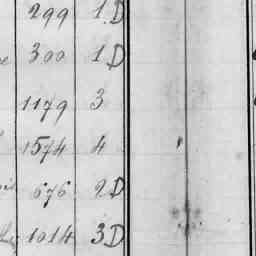 299 1.D
300 1.D
1179 3
1574 4
676 2.D
1014 3D